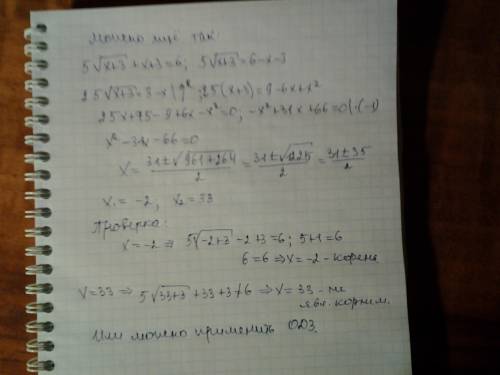 Можно ещё так:
5√(x+3) + x+3 = 6; 5√(x+3) = 6-x-3
25√(x+3) = 3-x |↑²; 25(x+3) = 9-6x+x²
25x+75-9+6x-x²=0; -x²+31x+66=0 |·(-1)
x²-31x-66=0
x = (31±√(961+264))/2 = (31±√1225)/2 = (31±35)/2
x₁=-2, x₂=33
Проверка:
x=-2 ⇒ 5√(-2+3) -2+3=6; 5+1=6
6=6 ⇒ x=-2 - корень
x=33 ⇒ 5√(33+3) +33+3≠6 ⇒ x=33 - не
явл. корнем.
Или можно применить ОДЗ.